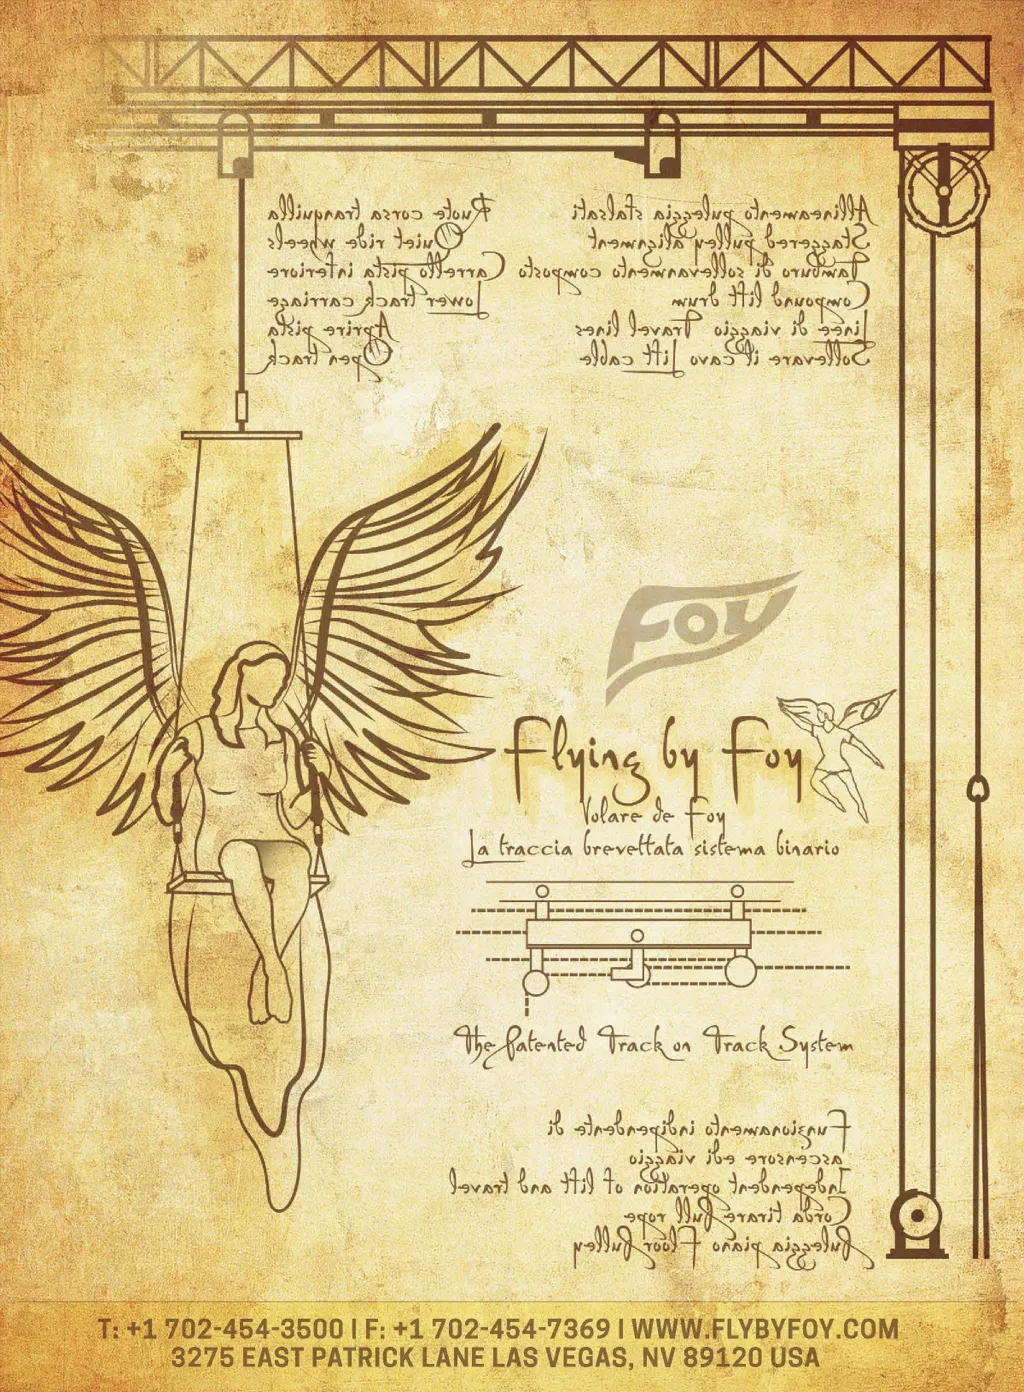 Ruote corsa tranquilla
Quiet ride wheels
Carrello pista inferiore
Lower track carriage
Aprire pista
Open track
Allineamento puleggia stalsati
Staggered pulley alignment
Tamburo di sollevamento composto
Compound lift drum
Linee di viaggio Travel lines
Sollevare il cavo Lift cable
FOY
Flying by Foy
Volare de Foy
La traccia brevettata sistema binario
The Patented Track on Track System
Funzionamento indipendente di
ascensore edi viaggio
Independent operation of lift and travel
Corda tirare Pull rope
Puleggia piano Floor Pulley
T: +1 702-454-3500 | F: +1 702-454-7369 | WWW.FLYBYFOY.COM
3275 EAST PATRICK LANE LAS VEGAS, NV 89120 USA